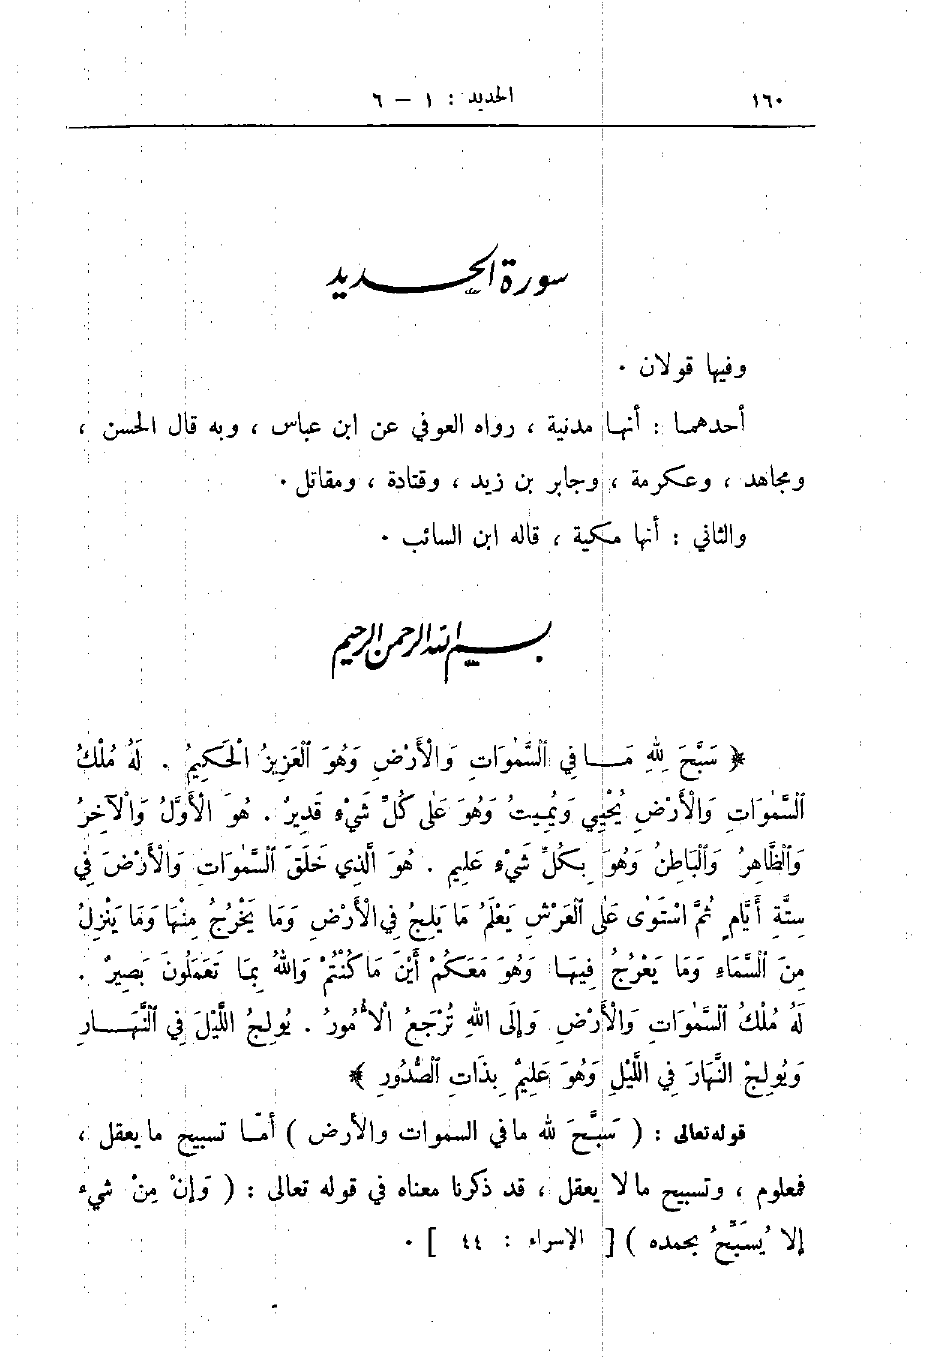 ١٦٠ الحديد : ١ – ٦
سورة الحديد
وفيها قولان .
أحدهما : أنها مدنية ، رواه العوفي عن ابن عباس ، وبه قال الحسن ،
ومجاهد ، وعكرمة ، وجابر بن زيد ، وقتادة ، ومقاتل .
والثاني : أنها مكية ، قاله ابن السائب .
بسم الله الرحمن الرحيم
﴿ سَبَّحَ لِلهِ مَا فِي السَّمٰوَاتِ وَالْأَرْضِ وَهُوَ الْعَزِيزُ الْحَكِيمُ . لَهُ مُلْكُ
السَّمٰوَاتِ وَالْأَرْضِ يُحْيِي وَيُمِيتُ وَهُوَ عَلٰى كُلِّ شَيْءٍ قَدِيرٌ . هُوَ الْأَوَّلُ وَالْآخِرُ
وَالظَّاهِرُ وَالْبَاطِنُ وَهُوَ بِكُلِّ شَيْءٍ عَلِيمٍ . هُوَ الَّذِي خَلَقَ السَّمٰوَاتِ وَالْأَرْضَ فِي
سِتَّةِ أَيَّامٍ ثُمَّ اسْتَوٰى عَلَى الْعَرْشِ يَعْلَمُ مَا يَلِجُ فِي الْأَرْضِ وَمَا يَخْرُجُ مِنْهَا وَمَا يَنْزِلُ
مِنَ السَّمَاءِ وَمَا يَعْرُجُ فِيهَا وَهُوَ مَعَكُمْ أَيْنَ مَا كُنْتُمْ وَاللهُ بِمَا تَعْمَلُونَ بَصِيرٌ .
لَهُ مُلْكُ السَّمٰوَاتِ وَالْأَرْضِ وَإِلَى اللهِ تُرْجَعُ الْأُمُورُ . يُولِجُ اللَّيْلَ فِي النَّهَارِ
وَيُولِجُ النَّهَارَ فِي اللَّيْلِ وَهُوَ عَلِيمٌ بِذَاتِ الصُّدُورِ ﴾
قوله تعالى : ( سَبَّحَ لله ما في السموات والأرض ) أمّا تسبيح ما يعقل ،
فمعلوم ، وتسبيح ما لا يعقل ، قد ذكرنا معناه في قوله تعالى : ( وَإنْ مِنْ شيء
إلا يُسَبِّحُ بحمده ) [ الإسراء : ٤٤ ] .